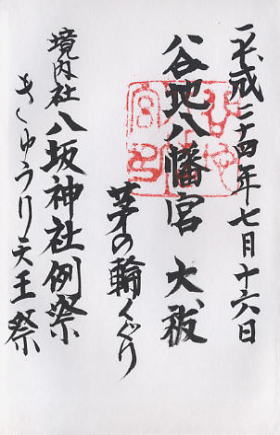 平成二十四年七月十六日
谷地八幡宮 大祓
茅の輪くぐり
境内社 八坂神社例祭
きゅうり天王祭